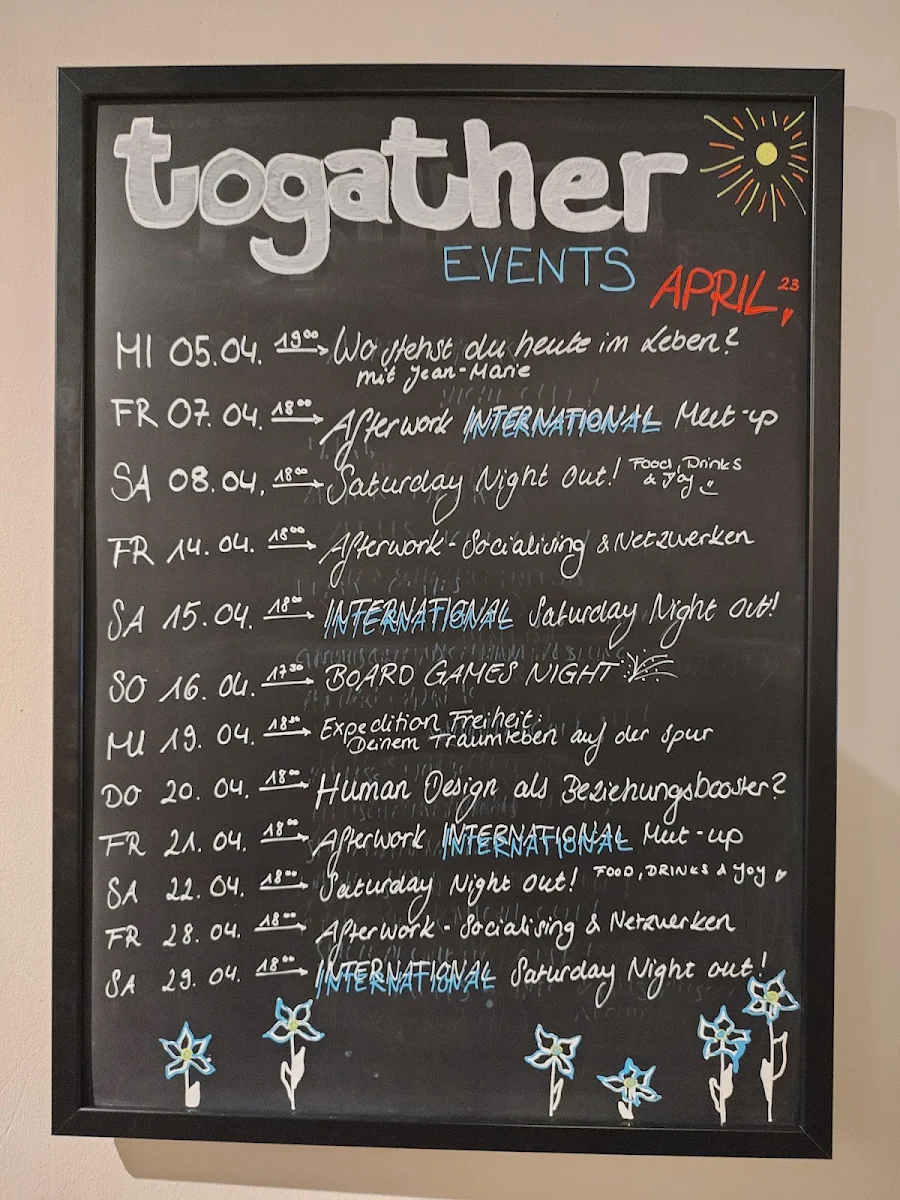 togather
EVENTS
APRIL 23
MI 05.04. 19⁰⁰ Wo stehst du heute im Leben?
mit Jean-Marie
FR 07.04. 18⁰⁰ Afterwork INTERNATIONAL Meet-up
SA 08.04. 18⁰⁰ Saturday Night Out! Food, Drinks
& Joy
FR 14.04. 18⁰⁰ Afterwork-Socialising & Netzwerken
SA 15.04. 18⁰⁰ INTERNATIONAL Saturday Night out!
SO 16.04. 17³⁰ BOARD GAMES NIGHT
MI 19.04. 18³⁰ Expedition Freiheit:
Deinem Traumleben auf der Spur
DO 20.04. 18⁰⁰ Human Design als Beziehungsbooster?
FR 21.04. 18⁰⁰ Afterwork INTERNATIONAL Meet-up
SA 22.04. 18⁰⁰ Saturday Night Out! FOOD, DRINKS & Joy
FR 28.04. 18⁰⁰ Afterwork-Socialising & Netzwerken
SA 29.04. 18⁰⁰ INTERNATIONAL Saturday Night out!